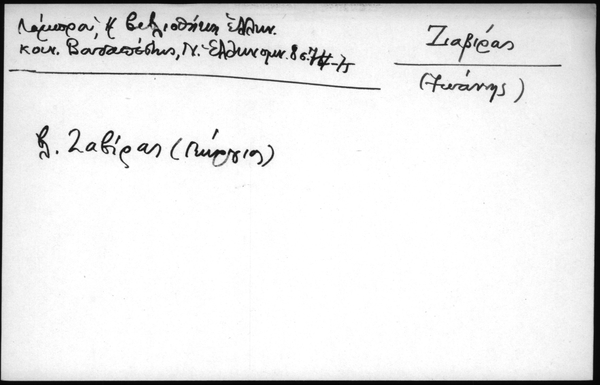 Λάμπρου, Ἡ βιβλιοθήκη Ἑλλην.
κοιν. Βουδαπέστης, Ν. Ἑλληνομν. 8
Ζαβίρας
(Ἰωάννης)
βλ. Ζαβίρας (Γεώργιος)